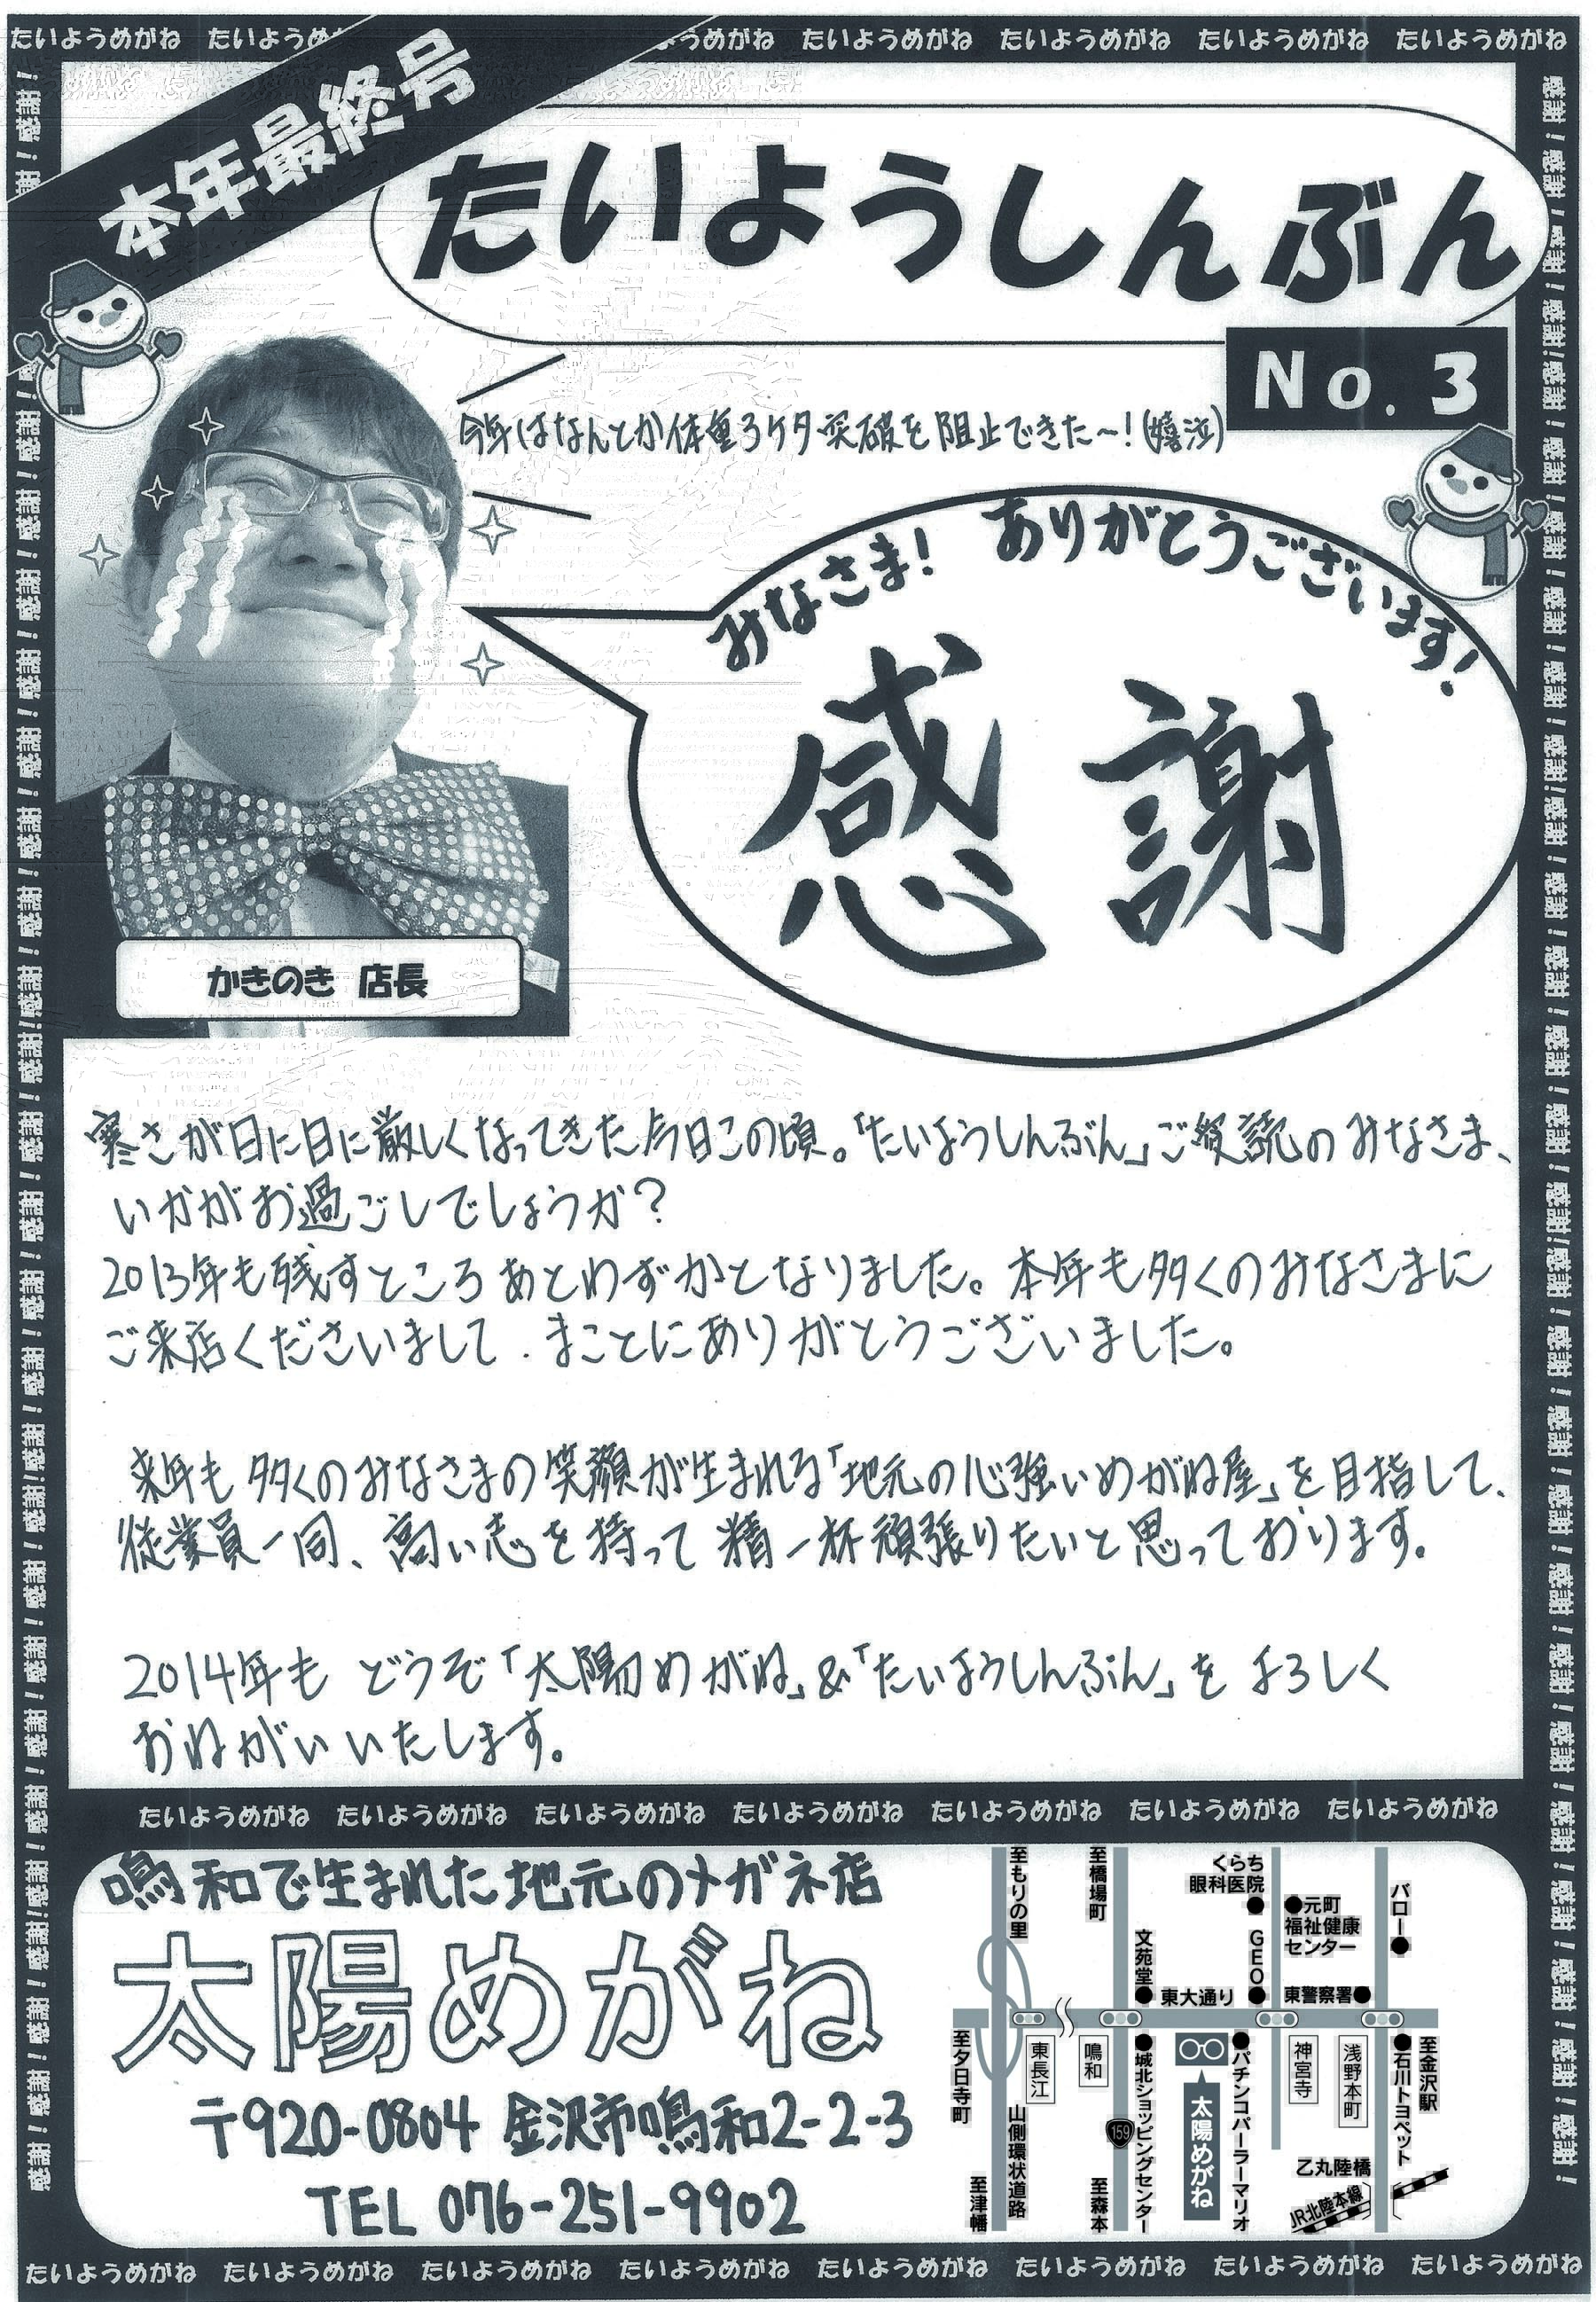 たいようめがね たいようめ うめがね たいようめがね たいようめがね たいようめがね たいようめがね
本年最終号
たいようしんぶん
No. 3
今年はなんとか体重3ケタ突破を阻止できた〜!(嬉泣)
みなさま! ありがとうございます!
感謝
かきのき 店長
寒さが日に日に厳しくなってきた今日この頃。「たいようしんぶん」ご愛読のみなさま、
いかがお過ごしでしょうか?
2013年も残すところあとわずかとなりました。本年も多くのみなさまに
ご来店くださいまして、まことにありがとうございました。
来年も多くのみなさまの笑顔が生まれる「地元の心強いめがね屋」を目指して、
従業員一同、高い志を持って精一杯頑張りたいと思っております。
2014年も どうぞ「太陽めがね」&「たいようしんぶん」を よろしく
おねがいいたします。
たいようめがね たいようめがね たいようめがね たいようめがね たいようめがね たいようめがね たいようめがね
鳴和で生まれた地元のメガネ店
太陽めがね
〒920-0804 金沢市鳴和2-2-3
TEL 076-251-9902
至もりの里
至橋場町
くらち
眼科医院
元町
福祉健康
センター
バロー
文苑堂
GEO
東大通り
東警察署
至夕日寺町
東長江
鳴和
城北ショッピングセンター
パチンコパーラーマリオ
神宮寺
浅野本町
石川トヨペット
至金沢駅
山側環状道路
159
太陽めがね
至津幡
至森本
乙丸陸橋
JR北陸本線
たいようめがね たいようめがね たいようめがね たいようめがね たいようめがね たいようめがね たいようめがね たいようめがね
感謝!感謝!感謝!感謝!感謝!感謝!感謝!感謝!感謝!感謝!感謝!感謝!感謝!感謝!感謝!感謝!感謝!感謝!感謝!感謝!感謝!感謝!感謝!感謝!
感謝!感謝!感謝!感謝!感謝!感謝!感謝!感謝!感謝!感謝!感謝!感謝!感謝!感謝!感謝!感謝!感謝!感謝!感謝!感謝!感謝!感謝!感謝!感謝!感謝!感謝!